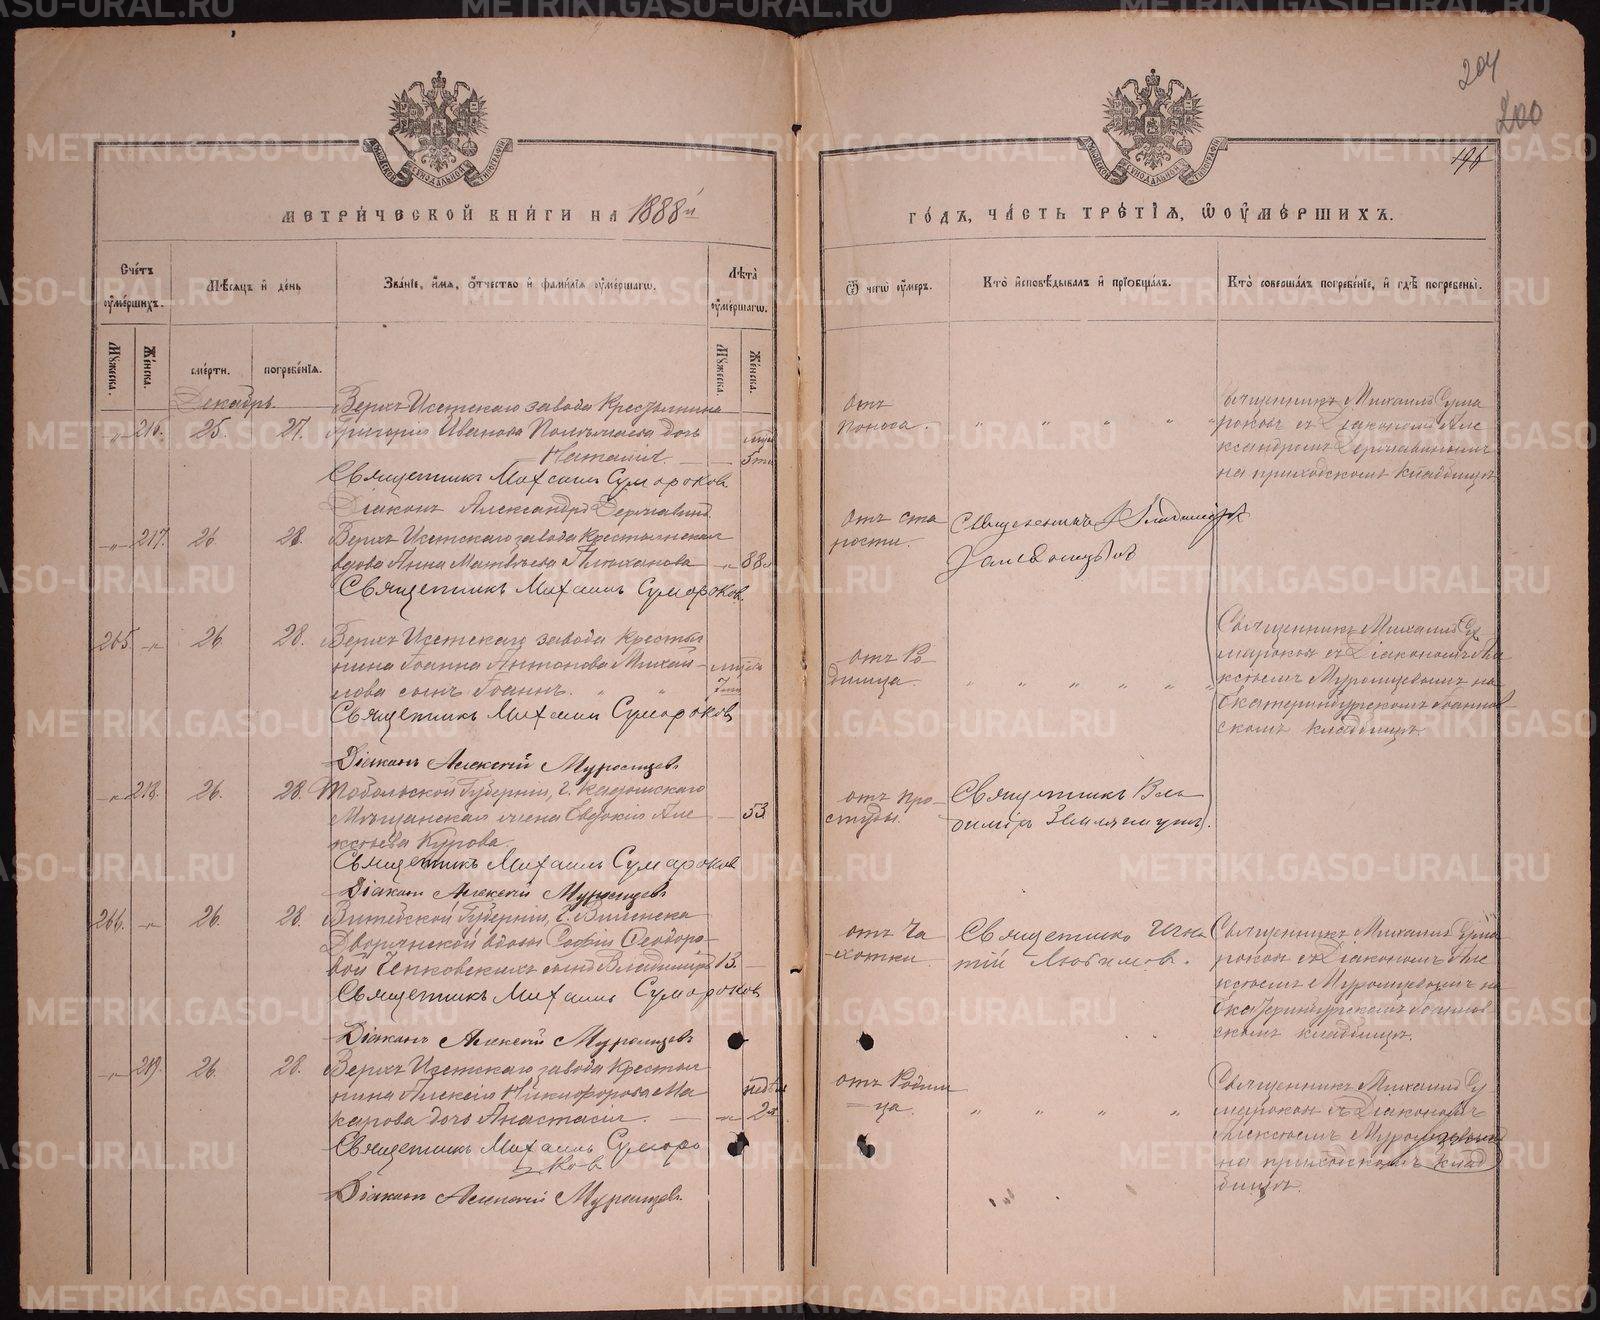 204
200
196
МЕТРИЧЕСКОЙ КНИГИ НА 1888й
ГОДЪ, ЧАСТЬ ТРЕТІЯ, Ѿ ОУМЕРШИХЪ.
Счетъ оумершихъ.
Мѣсяцъ и день
Званіе, имя, отчество и фамилія оумершагѡ.
Лѣта оумершагѡ.
Ѿ чегѡ оумеръ.
Кто исповѣдывалъ и пріобщалъ.
Кто совершалъ погребеніе, и гдѣ погребены.
Мужеска.
Женска.
смерти.
погребенія.
Мужеска.
Женска.
Декабрь.
216. 25. 27.
Верхъ Исетскаго завода Крестьянина
Григорія Иванова дочь
Наталія.
5
Священникъ Михаилъ Сумароковъ
Діаконъ Александръ Державинъ
отъ
поноса.
Священникъ Михаилъ Сума
роковъ съ Діакономъ Але
ксандромъ Державинымъ
на приходскомъ кладбищѣ
217. 26 28.
Верхъ Исетскаго завода Крестьянская
вдова Анна Матвѣева Плюханова
88
Священникъ Михаилъ Сумароковъ.
отъ ста
рости.
Священникъ Владиміръ
265. 26. 28.
Верхъ Исетскаго завода Крестья
нина Іоанна Антонова Михай-
лова сынъ Іоаннъ.
7
Священникъ Михаилъ Сумароковъ
Діаконъ Алексій Муромцевъ
отъ Ро-
димца.
Священникъ Михаилъ Су
мароковъ съ Діакономъ Але
ксѣемъ Муромцевымъ на
Екатеринбургскомъ Іоаннов
скомъ кладбищѣ.
218. 26. 28.
Тобольской Губерніи, г.
Мѣщанская жена Евдокія Але
ксѣева Курова.
53
Священникъ Михаилъ Сумароковъ
Діаконъ Алексій Муромцевъ
отъ про-
студы.
Священникъ Вла
димиръ Земляницынъ.
266. 26. 28.
Витебской Губерніи, г. Виленска
Дворянской вдовы Софіи Ѳеодоро-
вой сынъ Владиміръ 13.
Священникъ Михаилъ Сумароковъ
Діаконъ Алексій Муромцевъ
отъ Ча
хотки.
Священникъ Игна
тій Любимовъ.
Священникъ Михаилъ Сума
роковъ съ Діакономъ Але
ксѣемъ Муромцевымъ на
Екатеринбургскомъ Іоаннов
скомъ кладбищѣ.
219. 26. 28.
Верхъ Исетскаго завода Крестья
нина Алексія Никифорова Ма
карова дочь Анастасія.
недѣли
2
Священникъ Михаилъ Сумаро
ковъ
Діаконъ Алексій Муромцевъ.
отъ Родим
ца.
Священникъ Михаилъ Су
мароковъ съ Діакономъ
Алексѣемъ Муромцевымъ
на приходскомъ клад
бищѣ.
METRIKI.GASO-URAL.RU